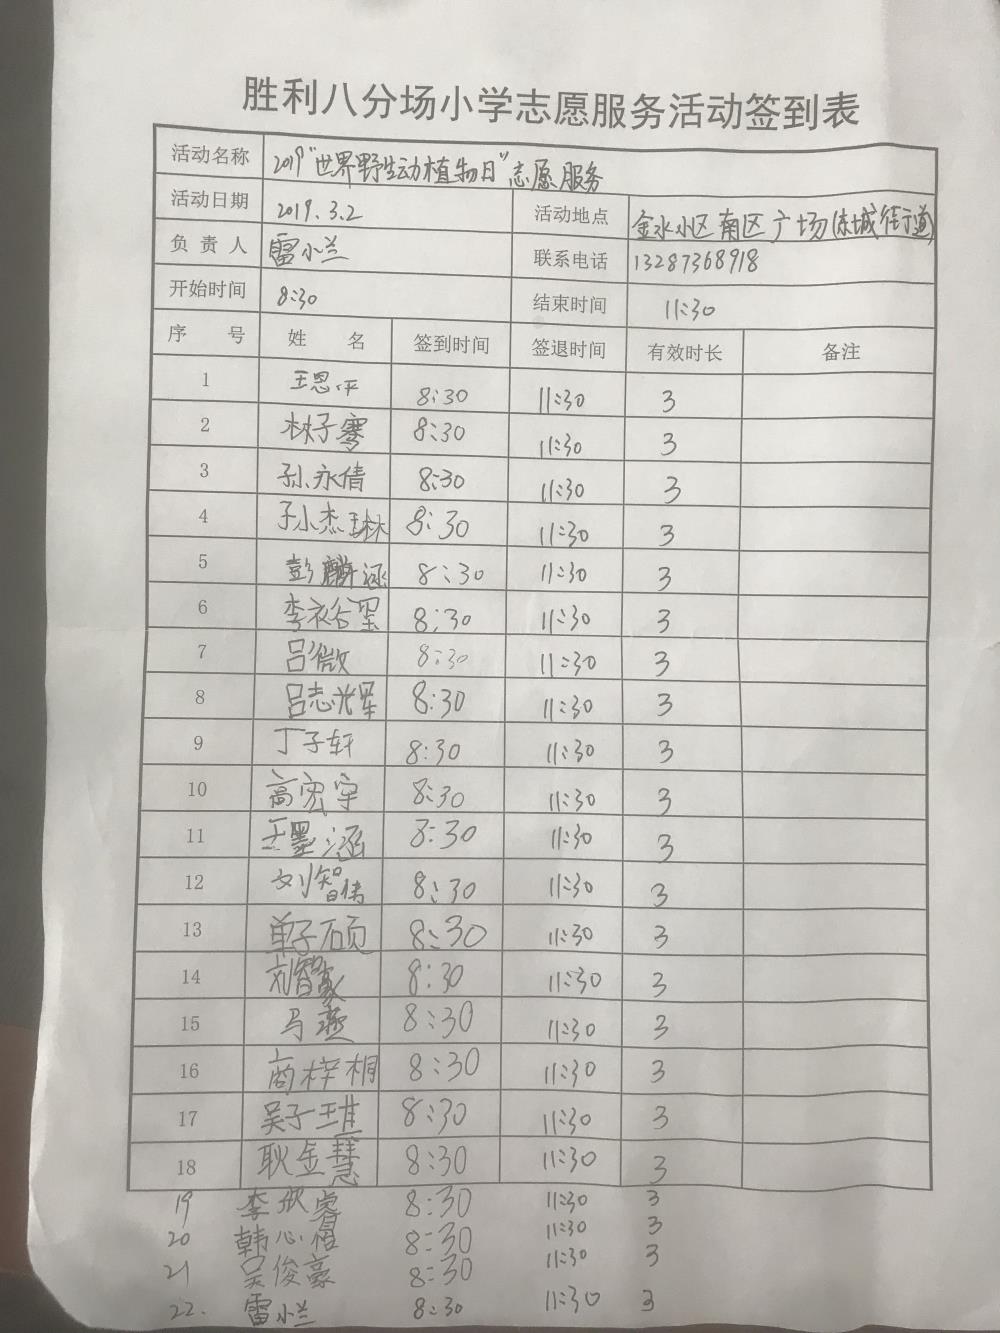 胜利八分场小学志愿服务活动签到表
活动名称 2019“世界野生动植物日”志愿服务
活动日期 2019.3.2 活动地点 金水小区南区广场(东城街道)
负责人 雷小兰 联系电话 13287368918
开始时间 8:30 结束时间 11:30
序号 姓名 签到时间 签退时间 有效时长 备注
1 王恩平 8:30 11:30 3
2 林子骞 8:30 11:30 3
3 孙永倩 8:30 11:30 3
4 8:30 11:30 3
5 彭麟涵 8:30 11:30 3
6 8:30 11:30 3
7 吕微 8:30 11:30 3
8 吕志光军 8:30 11:30 3
9 丁子轩 8:30 11:30 3
10 高宏宇 8:30 11:30 3
11 王墨涵 8:30 11:30 3
12 刘智伟 8:30 11:30 3
13 单子硕 8:30 11:30 3
14 刘智豪 8:30 11:30 3
15 马燕 8:30 11:30 3
16 商梓桐 8:30 11:30 3
17 吴子琪 8:30 11:30 3
18 耿金慧 8:30 11:30 3
19 李欣睿 8:30 11:30 3
20 韩心 8:30 11:30 3
21 吴俊豪 8:30 11:30 3
22. 雷小兰 8:30 11:30 3